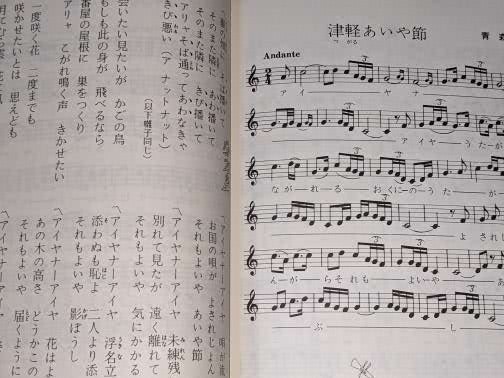 津軽あいや節
つがる
青森
Andante
アイーーヤナーー
アイヤうたが
ながれるおくにのうたが
よされじ
んがらそれもよいやーあ
ぶし
そのまた隣に あわ播いて
そのまた隣に きび播いて
アリャそば通って あわなきゃ
きび悪い(ア ナットナット)
(以下囃子同じ)
会いたい見たいが かごの鳥
もしも此の身が 飛べるなら
番屋の屋根に 巣をつくり
アリャ こがれ鳴く声 きかせたい
一度咲く花 二度までも
咲かせたいとは 思えども
お国の唄が よされじょんがら
それもよいや あいや節
〽アイヤナーアイヤ 未練残
別れて見たが 遠く離れて
それもよいや 気にかかる
〽アイヤナーアイヤ 浮名立
添わぬも恥よ 二人より添
それもよいや 影ぼうし
〽アイヤナーアイヤ 花はよ
あの木の高さ どうかこの
それもよいや 届くように